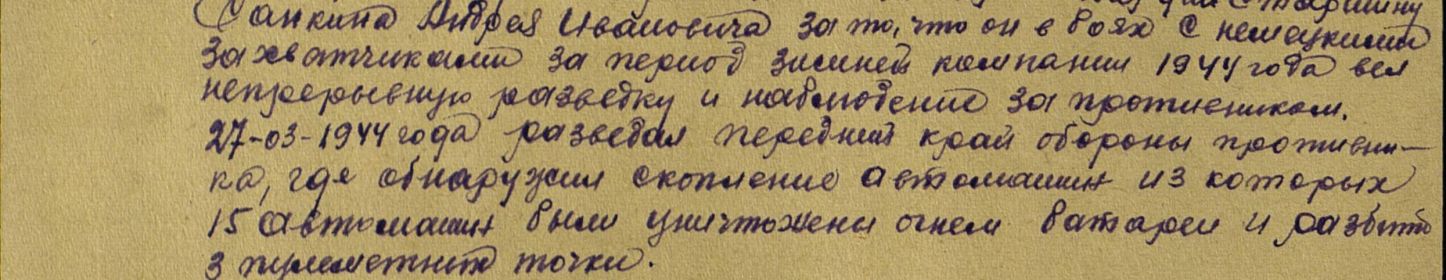 Санкина Андрея Ивановича за то, что он в боях с немецкими
захватчиками за период зимней компании 1944 года вел
непрерывную разведку и наблюдение за противником.
27-03-1944 года разведал передний край обороны противни-
ка, где обнаружил скопление автомашин из которых
15 автомашин были уничтожены огнем батареи и разбито
3 пулеметных точки.